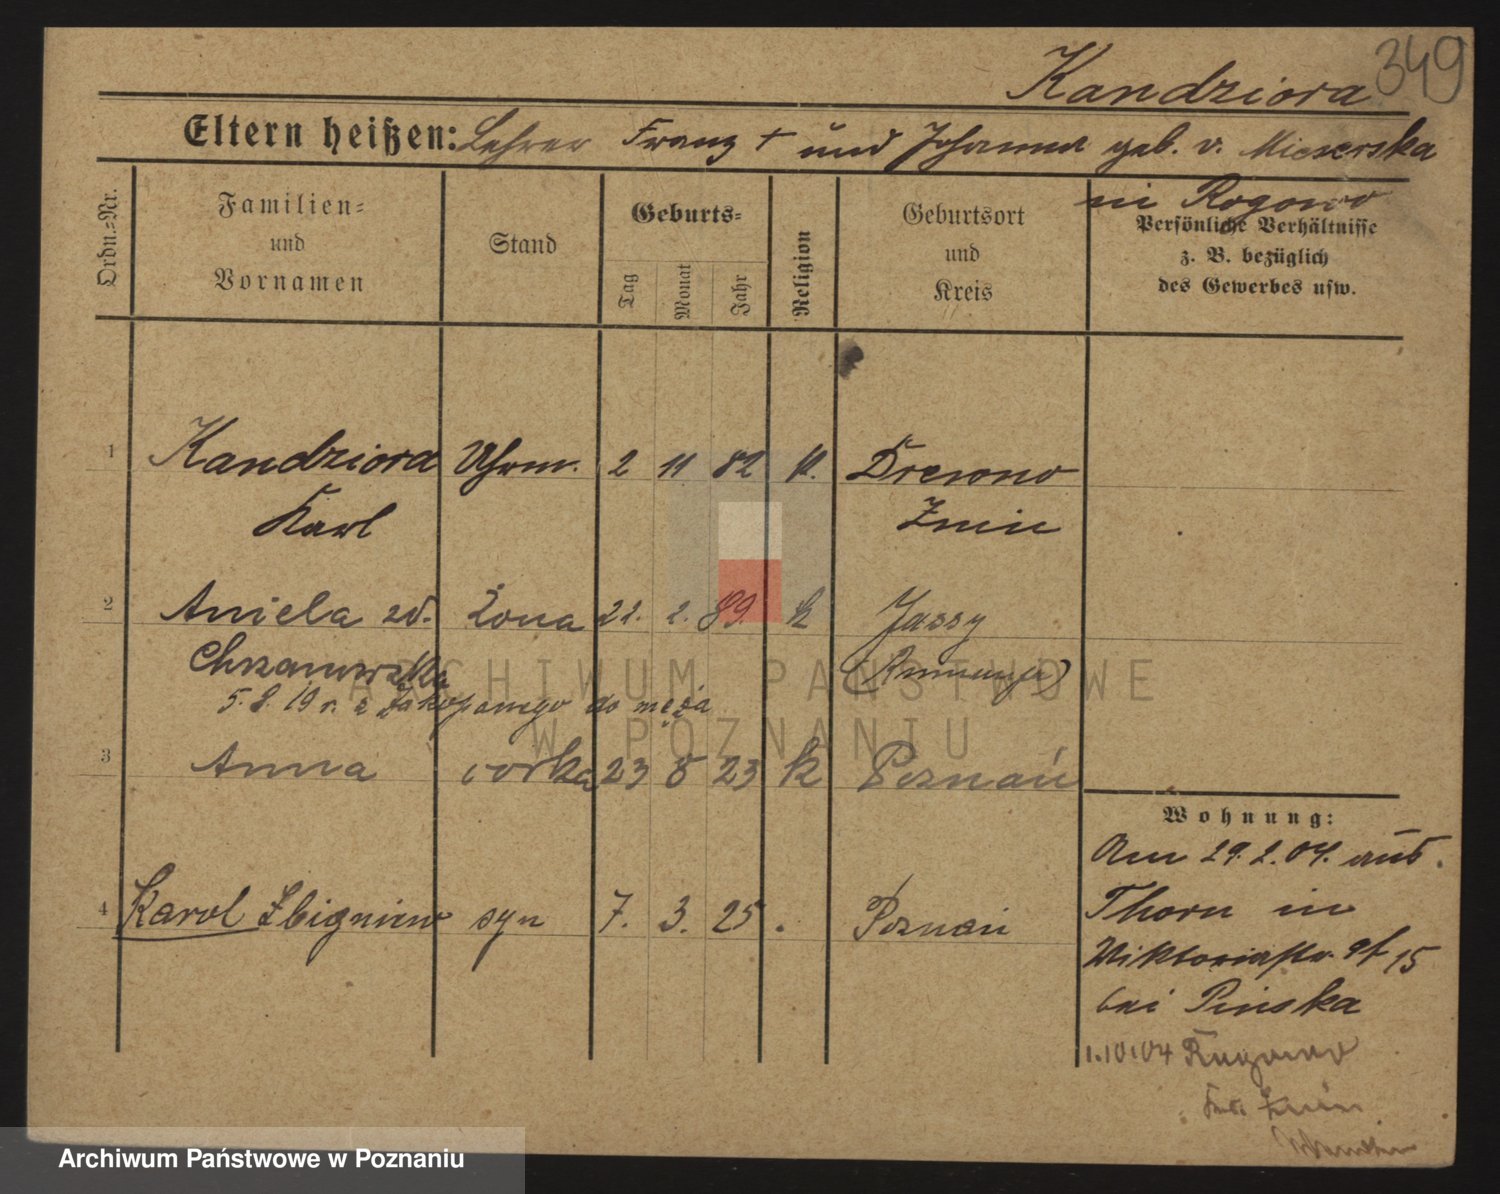 349
Kandziora
Eltern heißen: Lehrer Franz † und Johanna geb. v.
in Rogowo
Ordn.-Nr.
Familien- und Vornamen
Stand
Geburts-
Tag Monat Jahr
Religion
Geburtsort und Kreis
Persönliche Verhältnisse
z. B. bezüglich
des Gewerbes usw.
1 Kandziora Uhrm. 2 11 82 k.
Karl Znin
2 Aniela zd. Żona 22. 2. 89. k Jassy
Chrzanowska (Rumunja)
5. 8. 19 r. z Zakopanego do męża
3 Anna córka 23 8 23 k Poznań
4 Karol Zbigniew syn 7. 3. 25 . Poznań
Wohnung:
Am 29. 2. 04. aus
Thorn in
Viktoriastr. 15
bei Pinska
1.10.04 Rogowo
Krs. Znin
ARCHIWUM PAŃSTWOWE
W POZNANIU
Archiwum Państwowe w Poznaniu